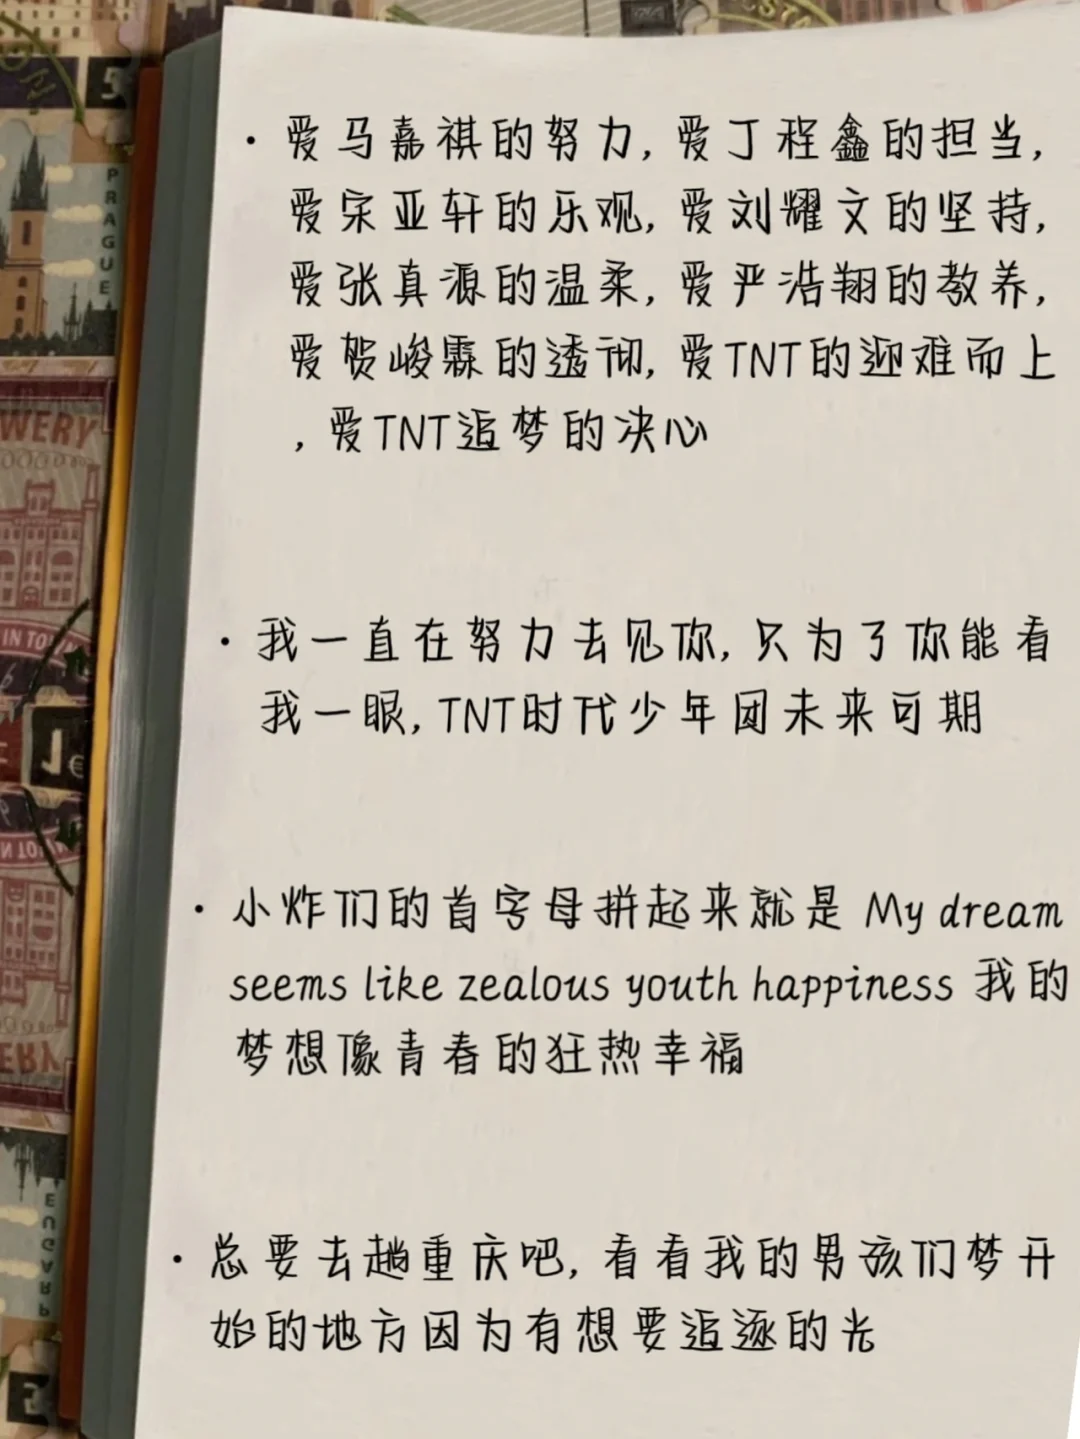 PRAGUE
WERY
IN TO
· 爱马嘉祺的努力,爱丁程鑫的担当,
爱宋亚轩的乐观,爱刘耀文的坚持,
爱张真源的温柔,爱严浩翔的教养,
爱贺峻霖的透彻,爱TNT的迎难而上
,爱TNT追梦的决心
· 我一直在努力去见你,只为了你能看
我一眼,TNT时代少年团未来可期
· 小炸们的首字母拼起来就是 My dream
seems like zealous youth happiness 我的
梦想像青春的狂热幸福
· 总要去趟重庆吧,看看我的男孩们梦开
始的地方因为有想要追逐的光